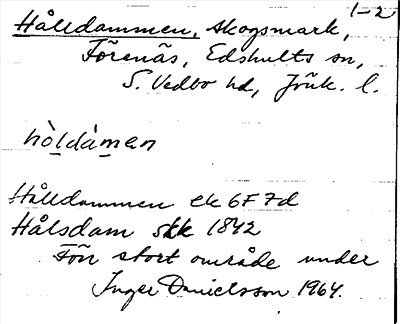 1-2
Hålldammen, skogsmark,
Förenäs, Edshults sn,
S. Vedbo hd, Jönk. l.
hòldàmen
Hålldammen ek 6F7d
Hålsdam skk 1842
För stort område under
Inger Danielsson 1964.